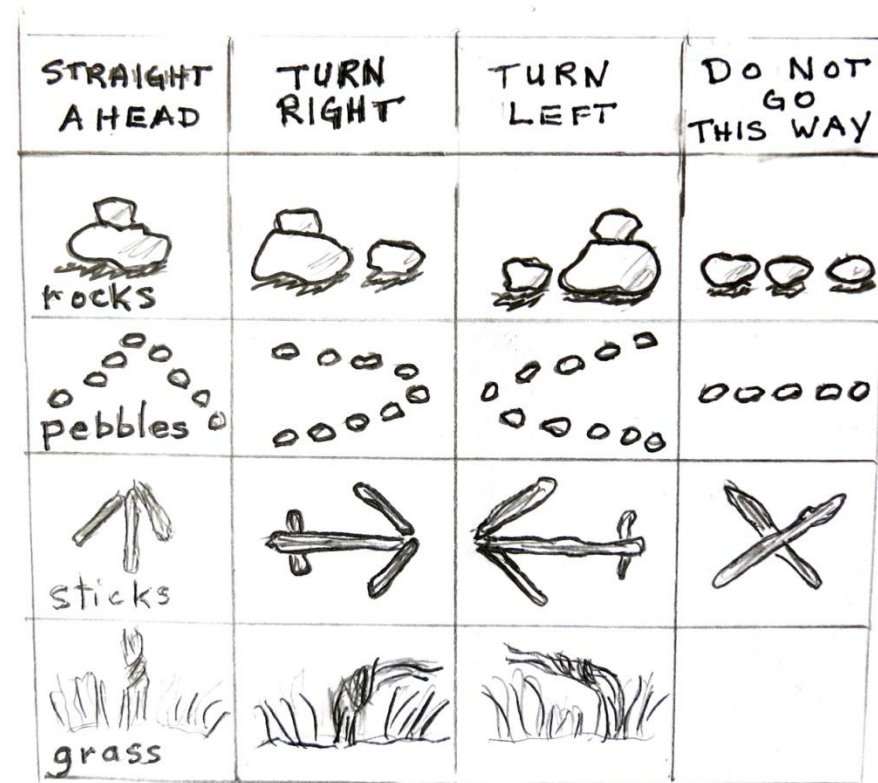 STRAIGHT
AHEAD
TURN
RIGHT
TURN
LEFT
DO NOT
GO
THIS WAY
rocks
pebbles
sticks
grass